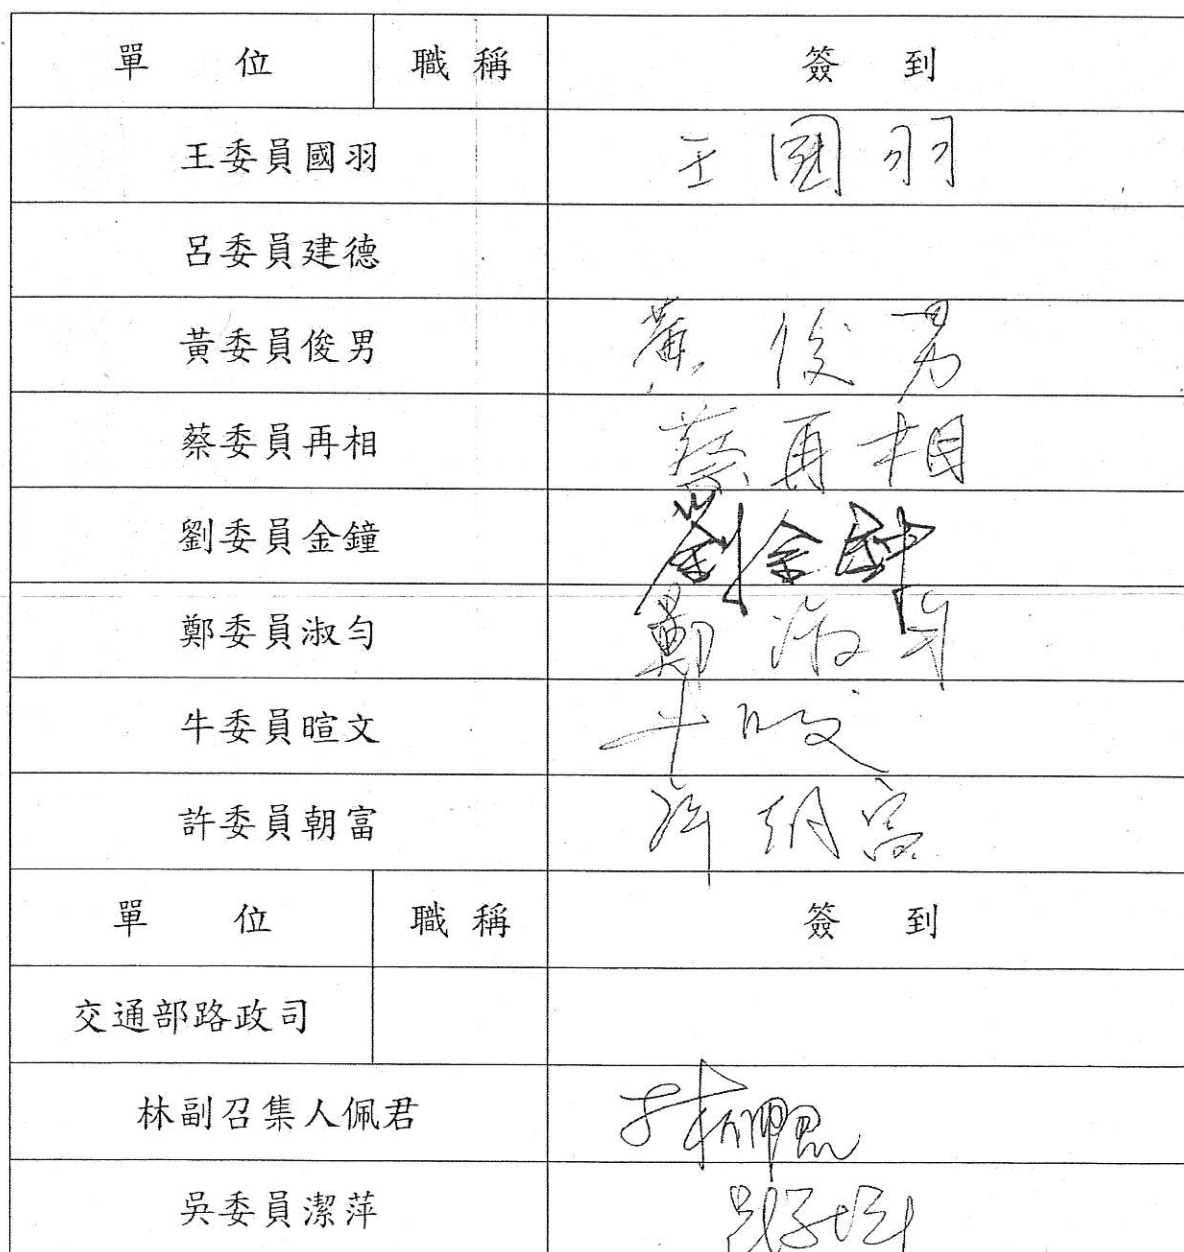 單 位 職 稱 簽 到
王委員國羽 王國羽
呂委員建德
黃委員俊男 黃俊男
蔡委員再相 蔡再相
劉委員金鐘 劉金鐘
鄭委員淑勻 鄭淑勻
牛委員暄文 牛暄文
許委員朝富 許朝富
單 位 職 稱 簽 到
交通部路政司
林副召集人佩君 林佩君
吳委員潔萍